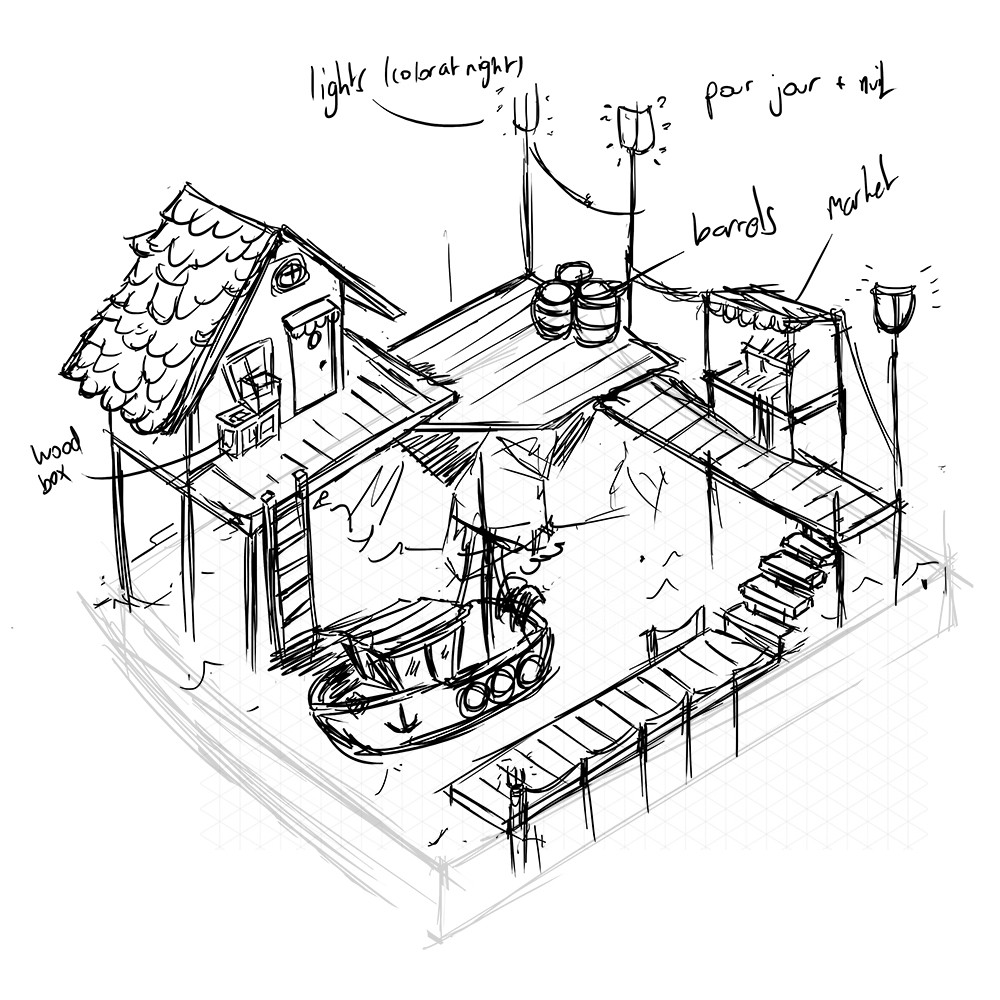 lights (color at night)
pour jour + nuit
barrels
market
wood
box